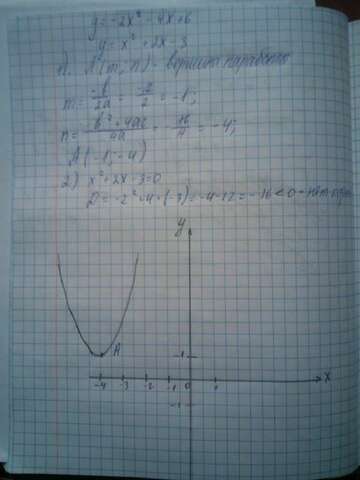 y = -2x² - 4x + 6
y = x² + 2x - 3
1). A(m; n) - вершина параболы
m = -b/2a = -2/2 = -1;
n = -b² + 4ac/4a = -16/4 = -4;
A(-1; -4)
2) x² + 2x - 3 = 0
D = -2² · 4 · (-3) = -4 - 12 = -16 < 0 - нет
y
A
1
-4 -3 -2 -1 0 1 x
-1